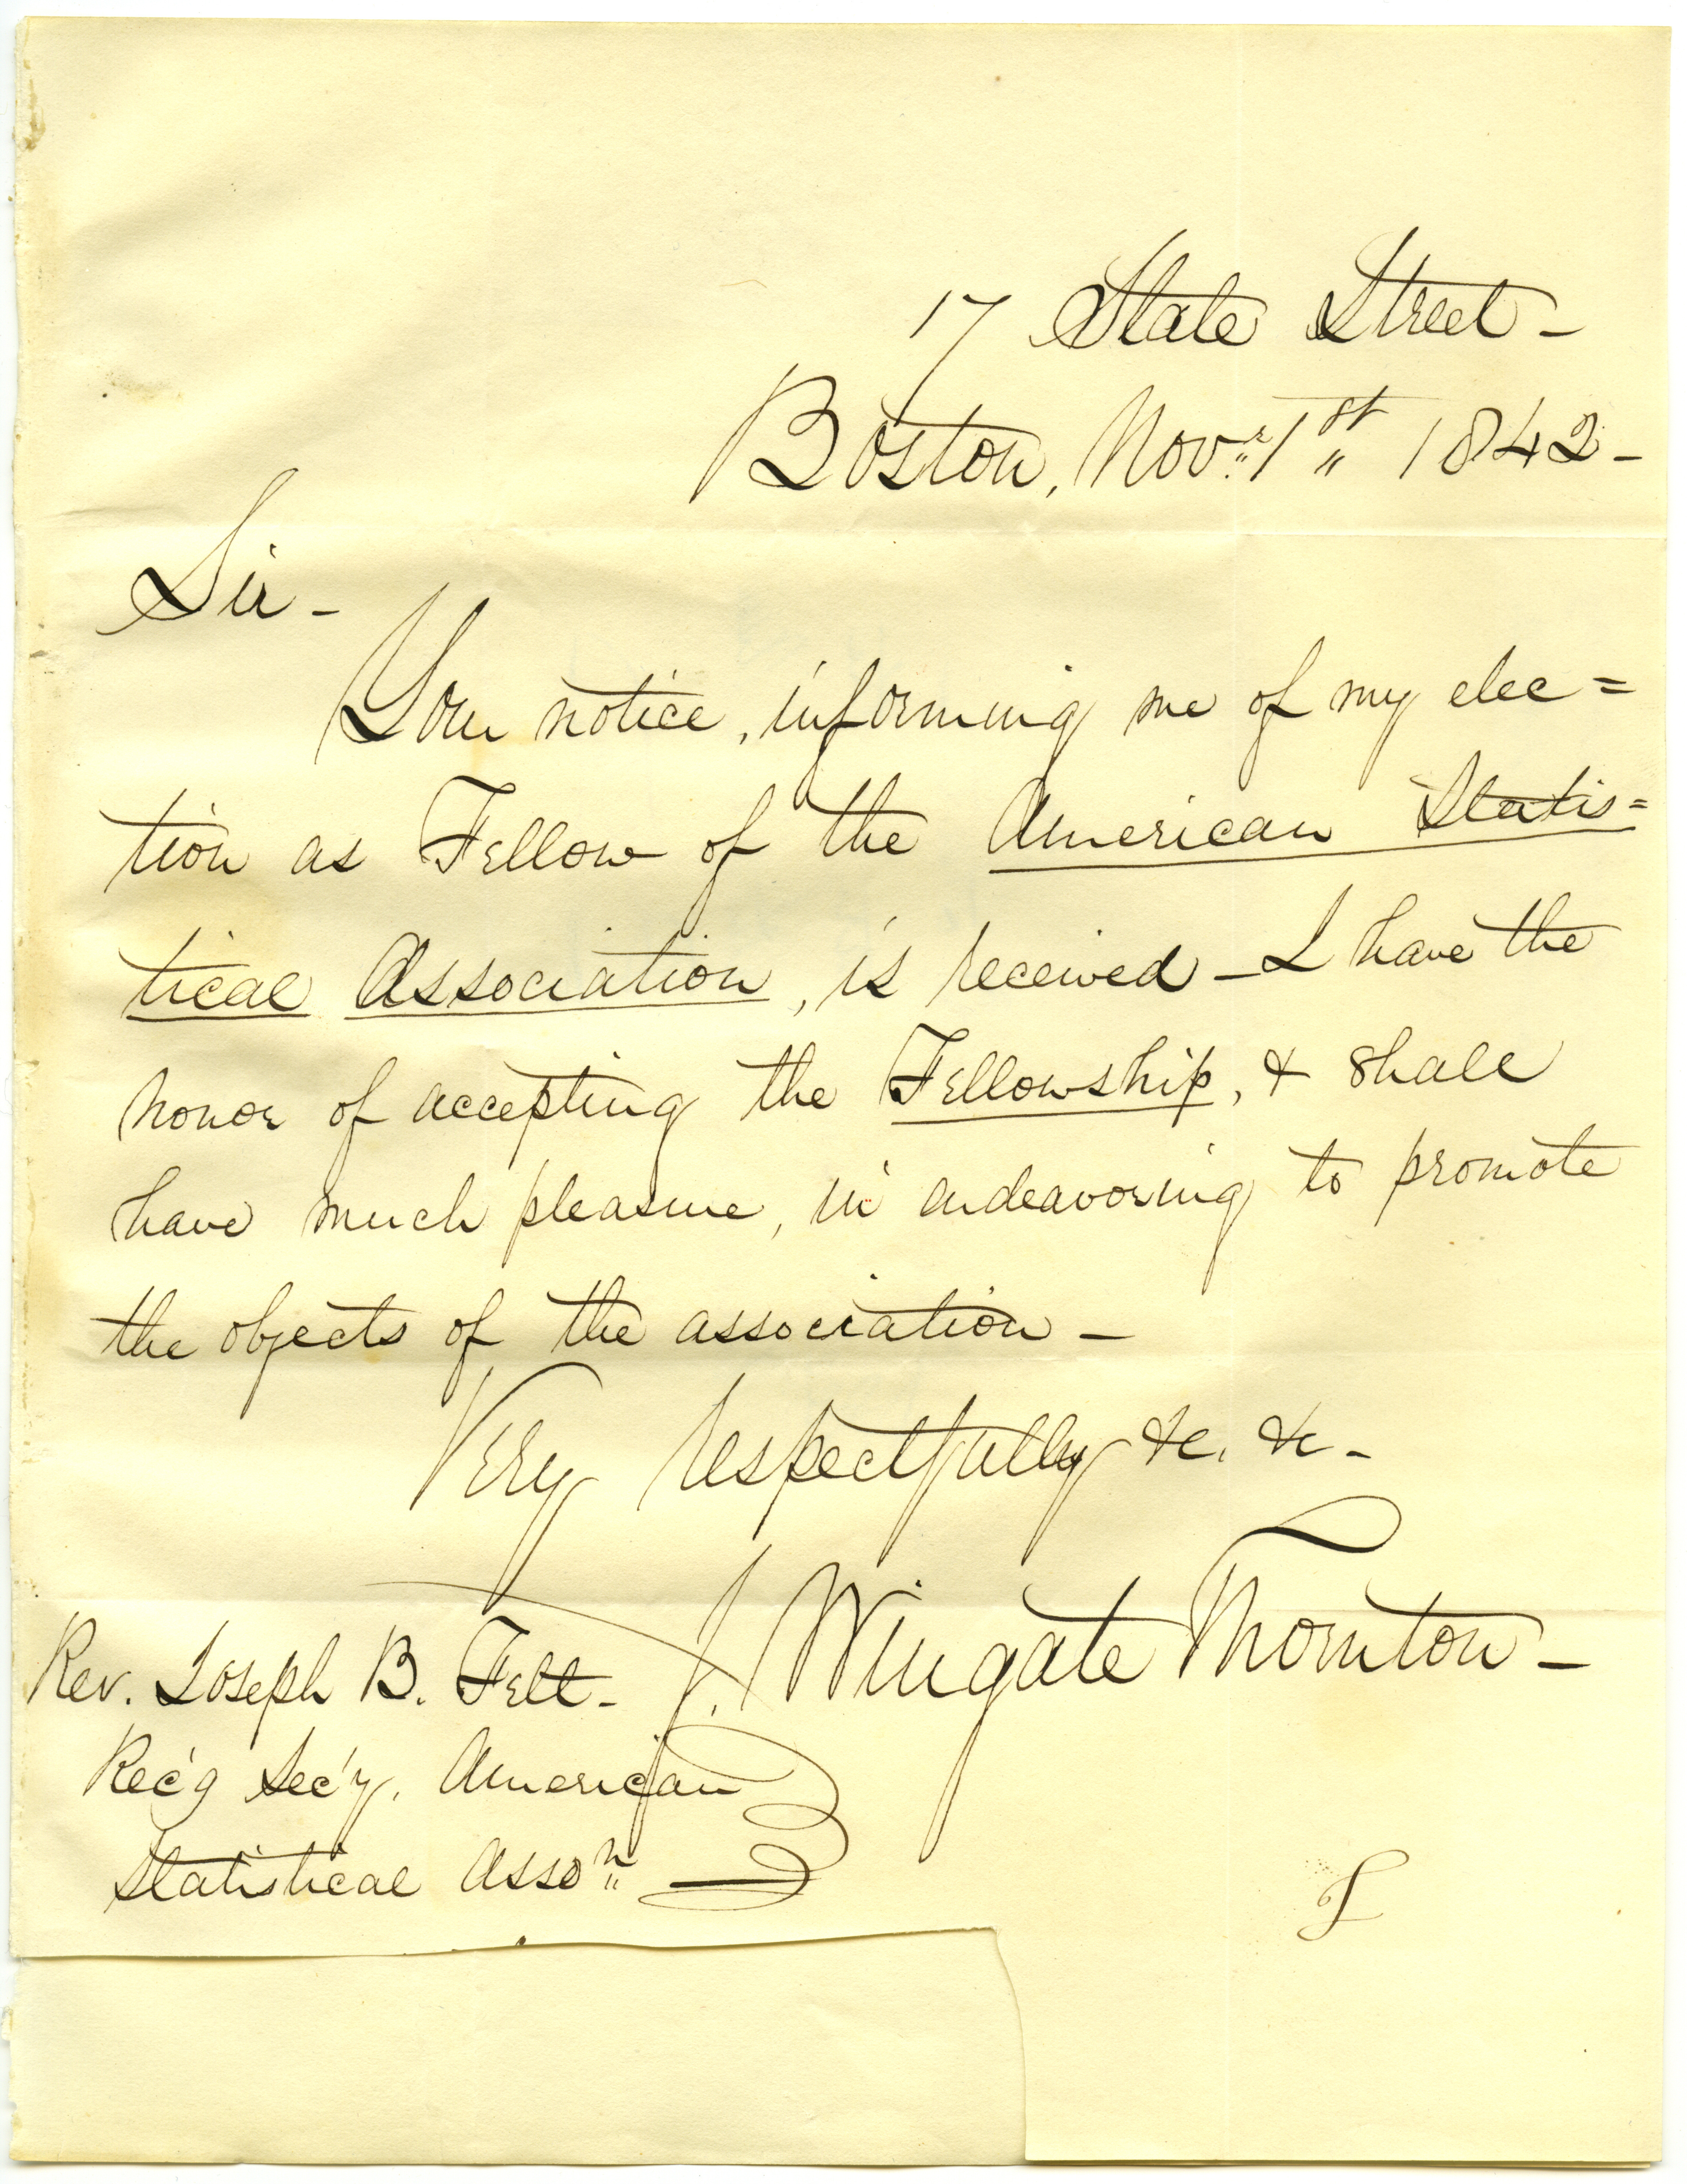 17 State Street -
Boston, Novr. 1st 1842 -
Sir -
Your notice, informing me of my elec=
tion as Fellow of the American Statis=
tical Association, is received - I have the
honor of accepting the Fellowship, & shall
have much pleasure, in endeavoring to promote
the objects of the association -
Very respectfully &c. &c -
J. Wingate Thornton -
Rev. Joseph B. Felt -
Rec'g Sec'y. American
Statistical Asson